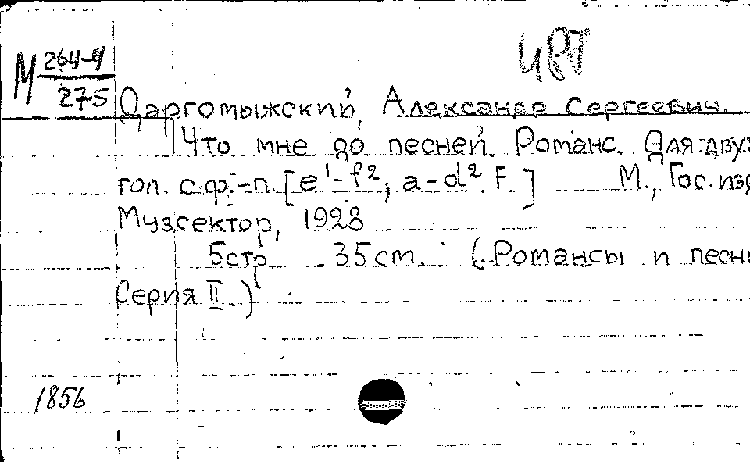 М 264-4
275
Даргомыжский, Александр Сергеевич
Что мне до песней. Романс. Для двух
гол. с ф.-п. [e¹-f², a-d². F.] М., Гос. изд.
Музсектор, 1928
5стр 35см. (Романсы и песни
Серия II.)
1856